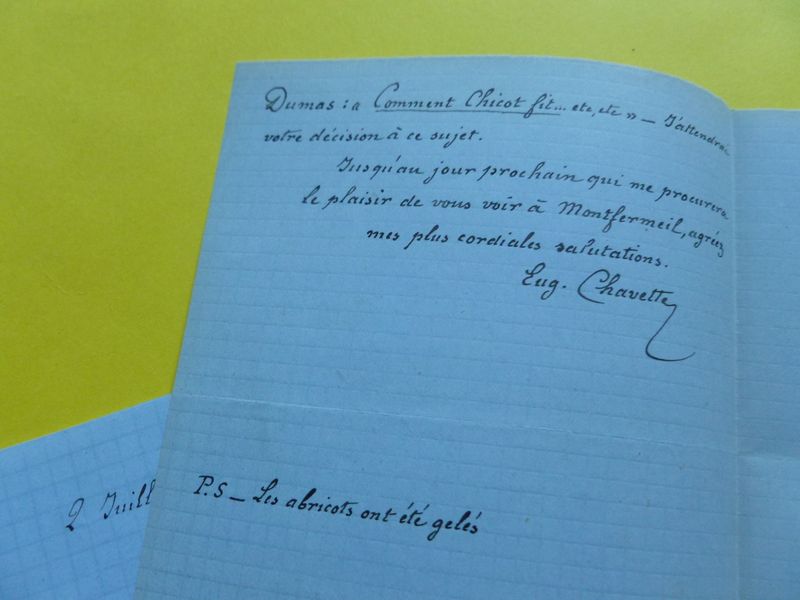 Dumas : « Comment Chicot fit... etc, etc » — J'attendrai
votre décision à ce sujet.
Jusqu'au jour prochain qui me procurera
le plaisir de vous voir à Montfermeil, agréez
mes plus cordiales salutations.
Eug. Chavette
P.S — Les abricots ont été gelés
2 Juill